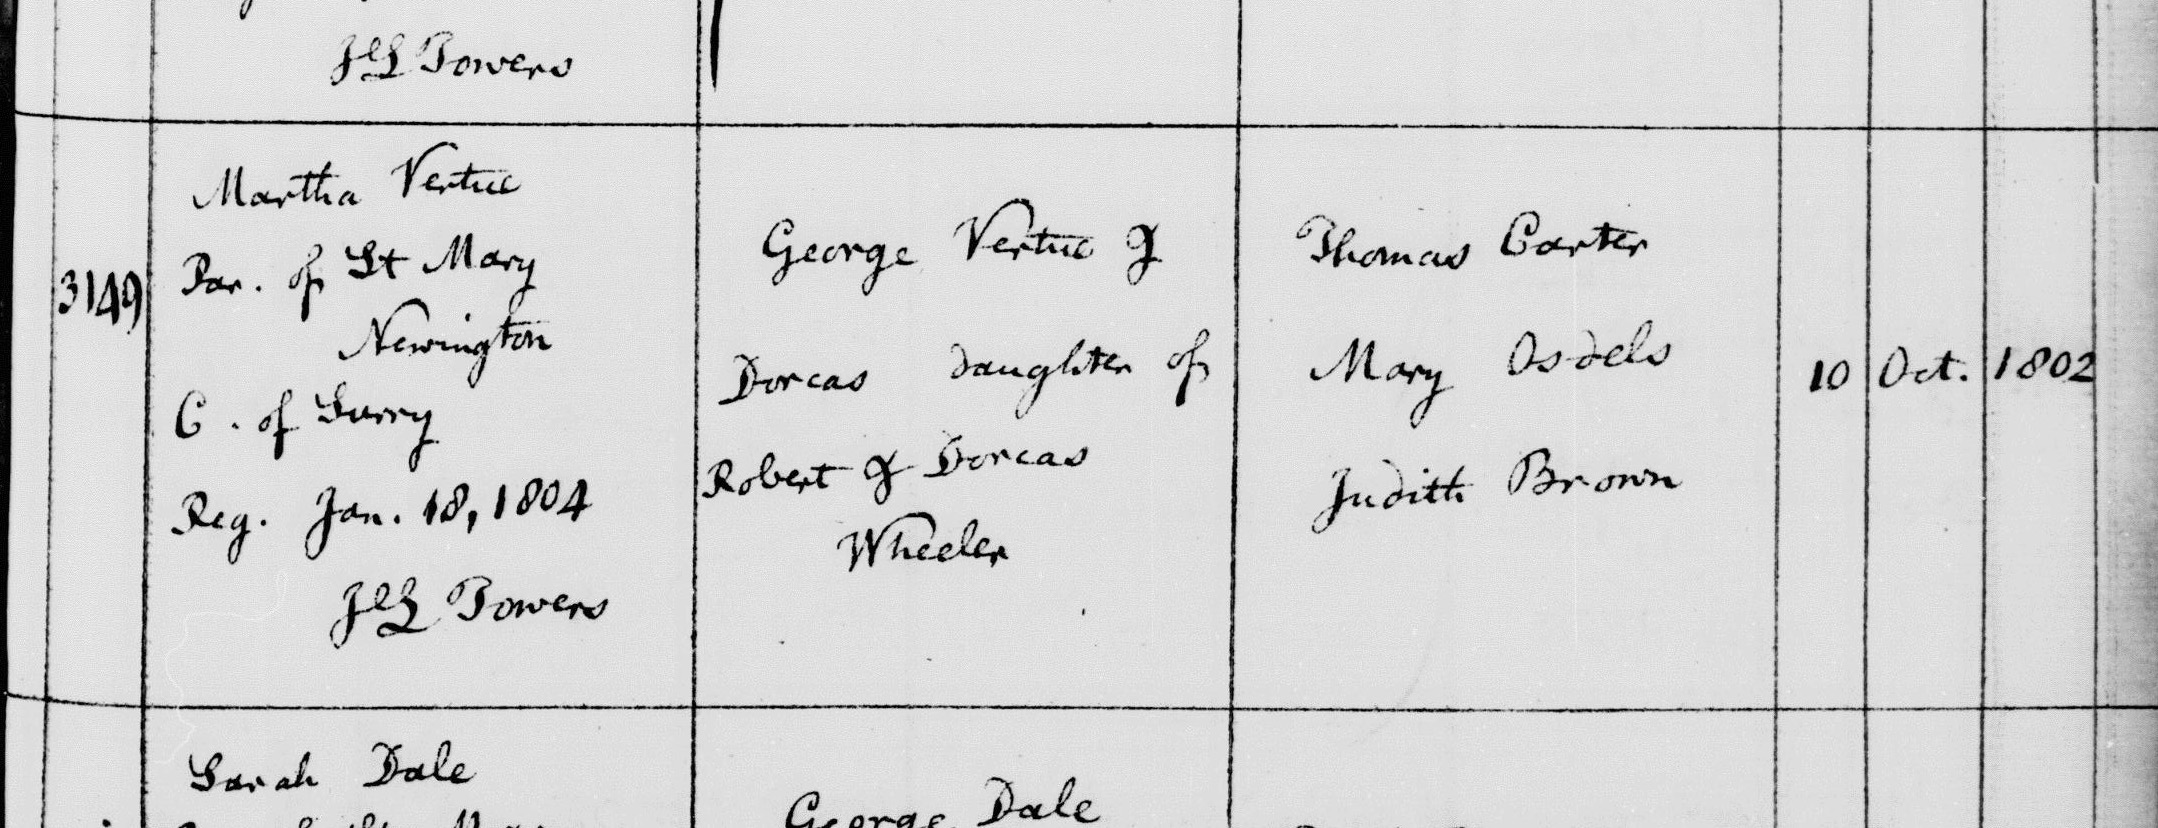 J & L Towers
3149
Martha Vertue
Par. of St Mary
Newington
C. of Surry
Reg. Jan. 18, 1804
J & L Towers
George Vertue &
Dorcas daughter of
Robert & Dorcas
Wheeler
Thomas Carter
Mary Osdels
Judith Brown
10 Oct. 1802
Sarah Dale
George Dale